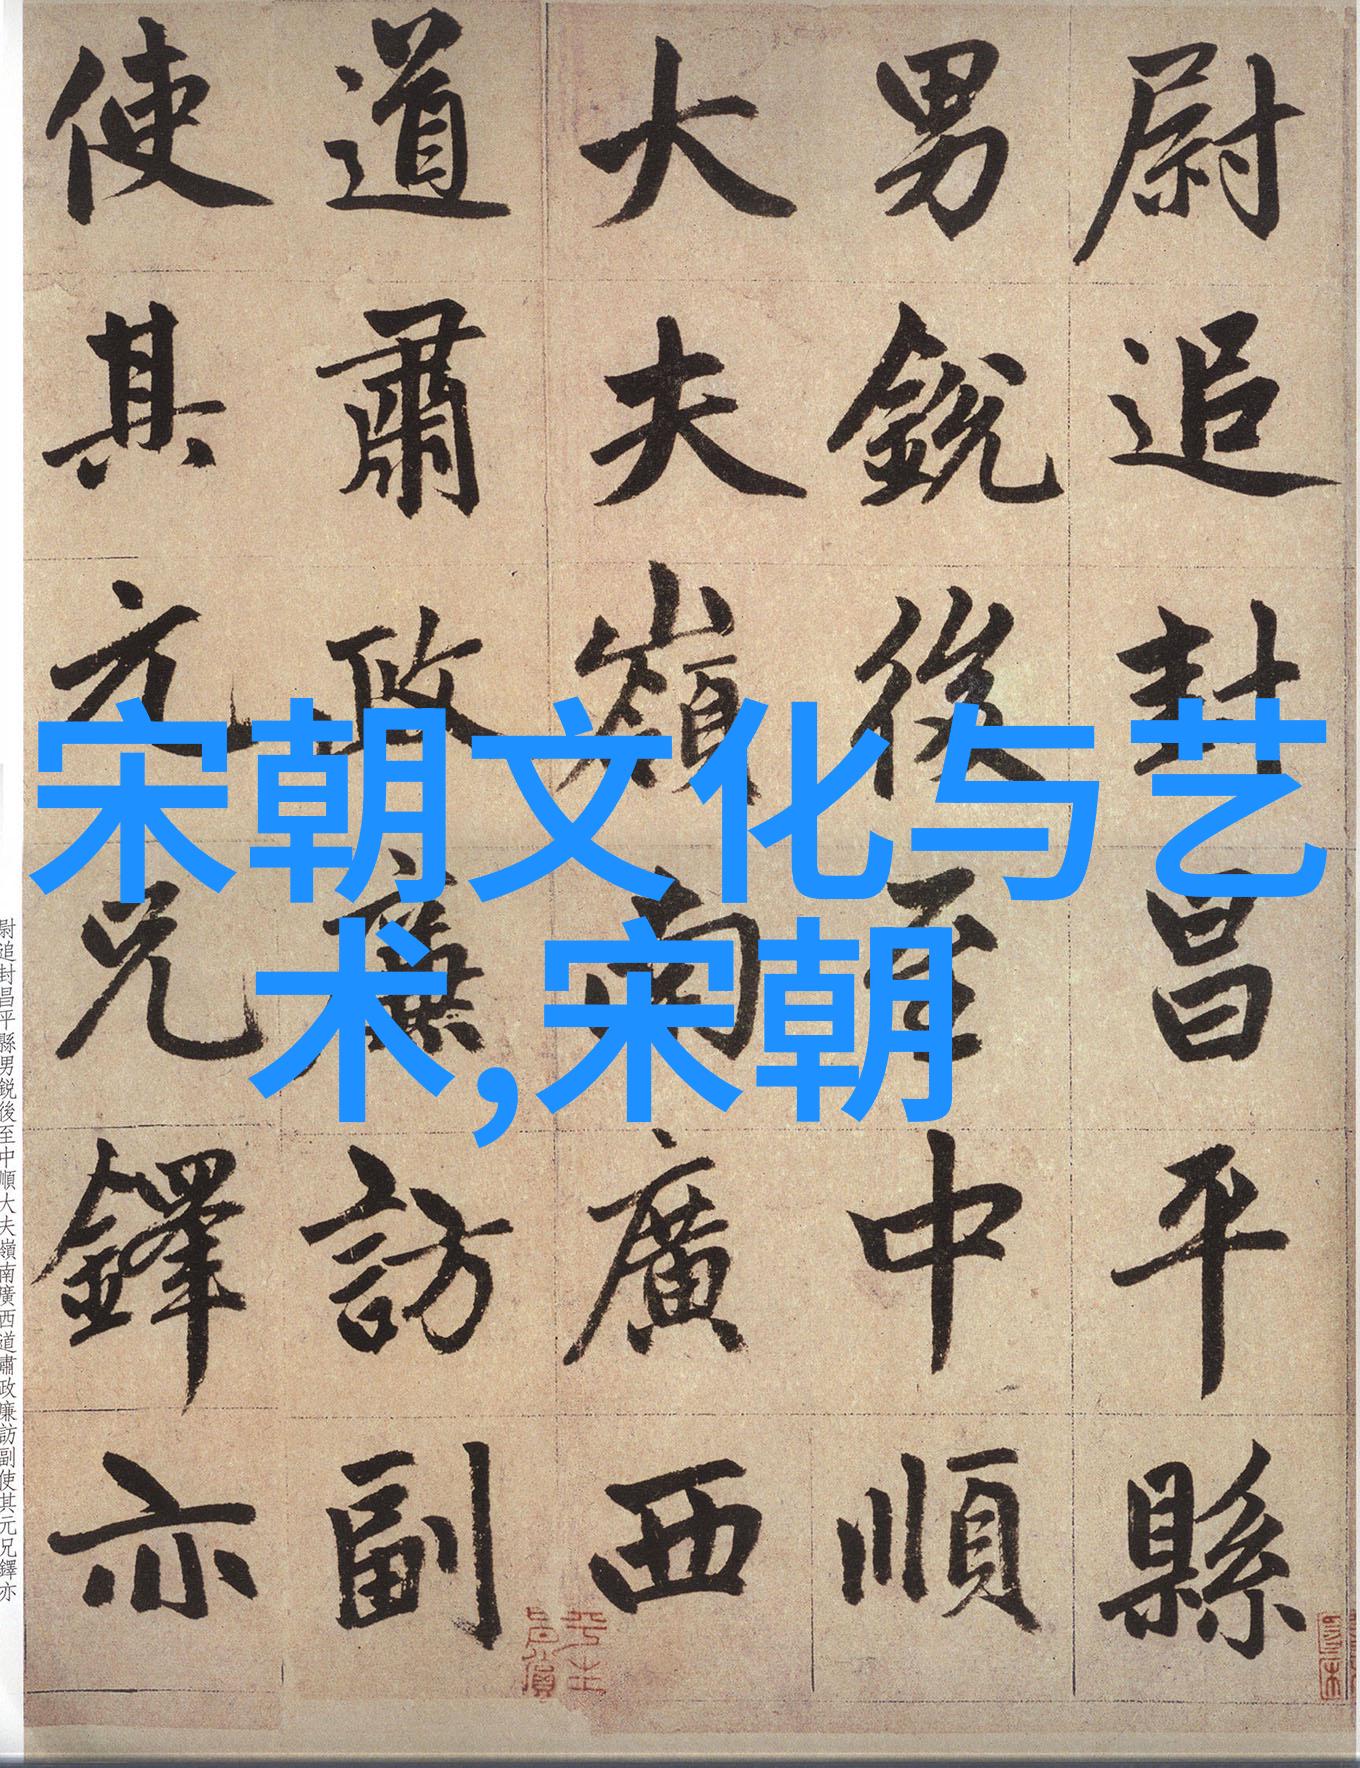 尉追封昌平縣
男銳後至中順
大夫嶺南廣西
道肅政廉訪副
使其元兄鐸亦
宋朝文化与艺
术,宋朝
尉追封昌平縣男銳後至中順大夫嶺南廣西道肅政廉訪副使其元兄鐸亦